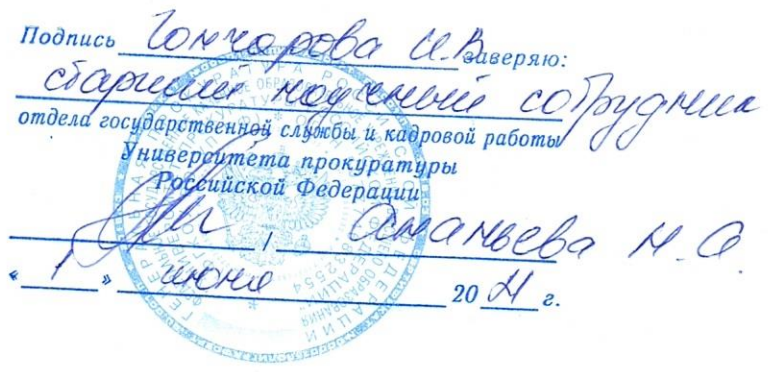 Подпись Гончарова И.В. заверяю:
старший научный сотрудник
отдела государственной службы и кадровой работы
Университета прокуратуры
Российской Федерации
, Ананьева М.О.
« 1 » июня 20 21 г.